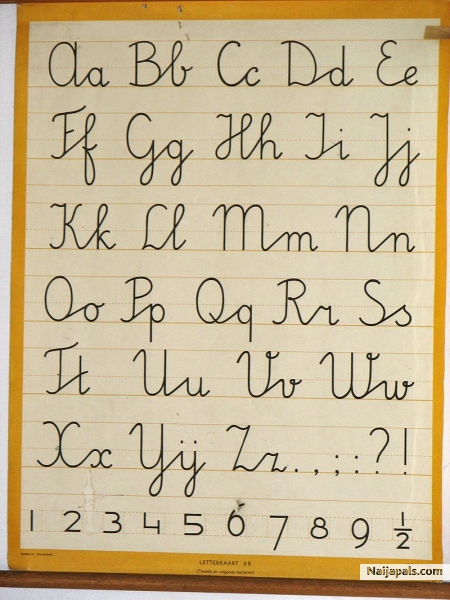 Aa Bb Cc Dd Ee
Ff Gg Hh Ii Jj
Kk Ll Mm Nn
Oo Pp Qq Rr Ss
Tt Uu Vv Ww
Xx Yij Zz . , ; : ? !
1 2 3 4 5 6 7 8 9 ½
LETTERKAART
(Tweede en volgende leerjaren)
Naijapals.com